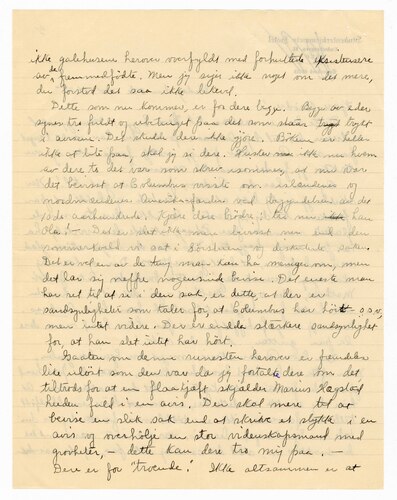 ikke galehusene herover overfyldt med forhutlede
av de fremmedfödte. Men jeg siger ikke noget om det mere,
du forstod det saa ikke likevel.
Dette som nu kommer, er for dere begge. Begge av eder
synes tro fuldt og ubetinget paa det som staar trykt
i avisen. Det skulde dere ikke gjøre. Böken er heller
ikke at lite paa, skal jeg si dere. Husker ikke nu hvem
av dere to det var som skrev isommer, at nu var
det bevist at Columbus visste om islændernes og
nordmændenes Amerikafærder ved begyndelsen av det
11de aarhundrede. Kjære dere brödre! tro nu ikke han
Ola! — Det er det ikke mer bevist nu end den
sommerkveld vi sat i og diskuterte saken.
Det er vel en av de ting man kan ha meninger om, men
det lar sig neppe nogensinde bevise. Det eneste man
har ret til at si i den sak, er dette, at der er
sandsynligheter som taler for, at Columbus har hört o.s.v.,
men intet videre. Der er endda stærkere sandsynlighet
for, at han slet intet har hört.
Gaaten om denne runesten herover er fremdeles
like ulöst som den var da jeg fortalte dere om det
tiltrods for at en flaakjeft skjælder Marius Hægstad
huden fuld i en avis. Der skal mere til at
bevise en slik sak end at skrive et stykke i en
avis og overhölje en stor videnskapsmand med
grovheter, — dette kan dere tro mig paa. —
Dere er for "troende"! Ikke altsammen er at